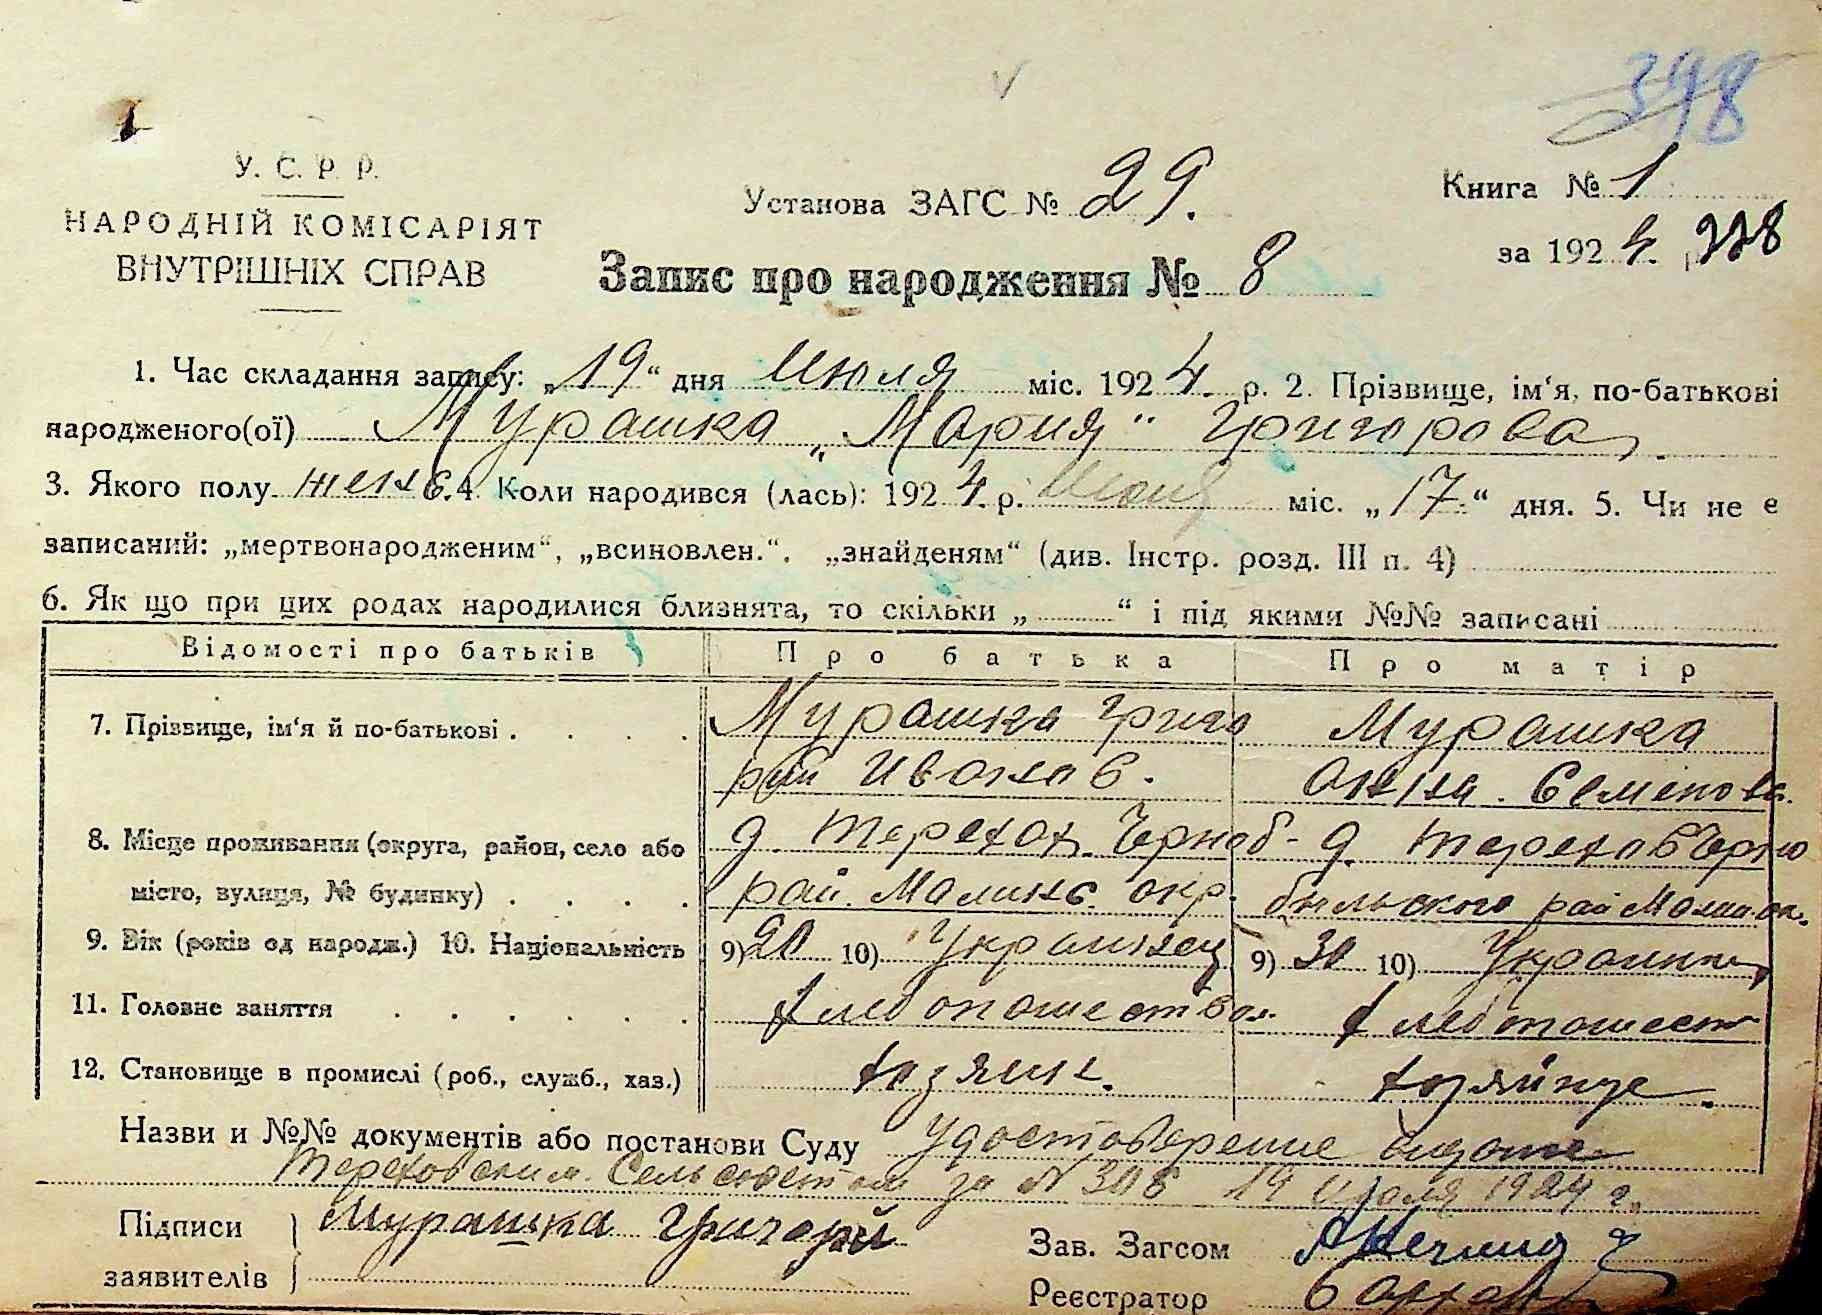 398
У. С. Р. Р.
НАРОДНІЙ КОМІСАРІЯТ
ВНУТРІШНІХ СПРАВ
Установа ЗАГС № 29.
Книга № 1
за 192 4. 228
Запис про народження № 8
1. Час складання запису: „19“ дня Июля міс. 192 4. р. 2. Прізвище, ім‘я, по-батькові
народженого(ої) Мурашка „Мария“ Григорова
3. Якого полу женс. 4. Коли народився (лась): 192 4. р. Июля міс. „17“ дня. 5. Чи не є
записаний: „мертвонародженим“, „всиновлен.“. „знайденям“ (див. Інстр. розд. III п. 4)
6. Як що при цих родах народилися близнята, то скільки „ “ і під якими №№ записані
Відомості про батьків Про батька Про матір
7. Прізвище, ім‘я й по-батькові . . . . Мурашка Григо Мурашка
рий Иванов. Анна. Семенова.
8. Місце проживання (округа, район, село або д. Терехов. Черноб- д. Терехов Черно
місто, вулиця, № будинку) . . . . рай. Малинс. окр. быльского рай Малин. ок.
9. Вік (років од народж.) 10. Національність 9) 10) Украинец 9) 30 10) Украинка
11. Головне заняття . . . . . . Хлебопашество. Хлебопашест
12. Становище в промислі (роб., служб., хаз.) хозяин. хозяйнуе.
Назви и №№ документів або постанови Суду Удостоверение выдане
Тереховским. Сельсоветом за № 308 19 Июля 1924 г.
Підписи Мурашка Григорий
заявителів
Зав. Загсом
Реєстратор